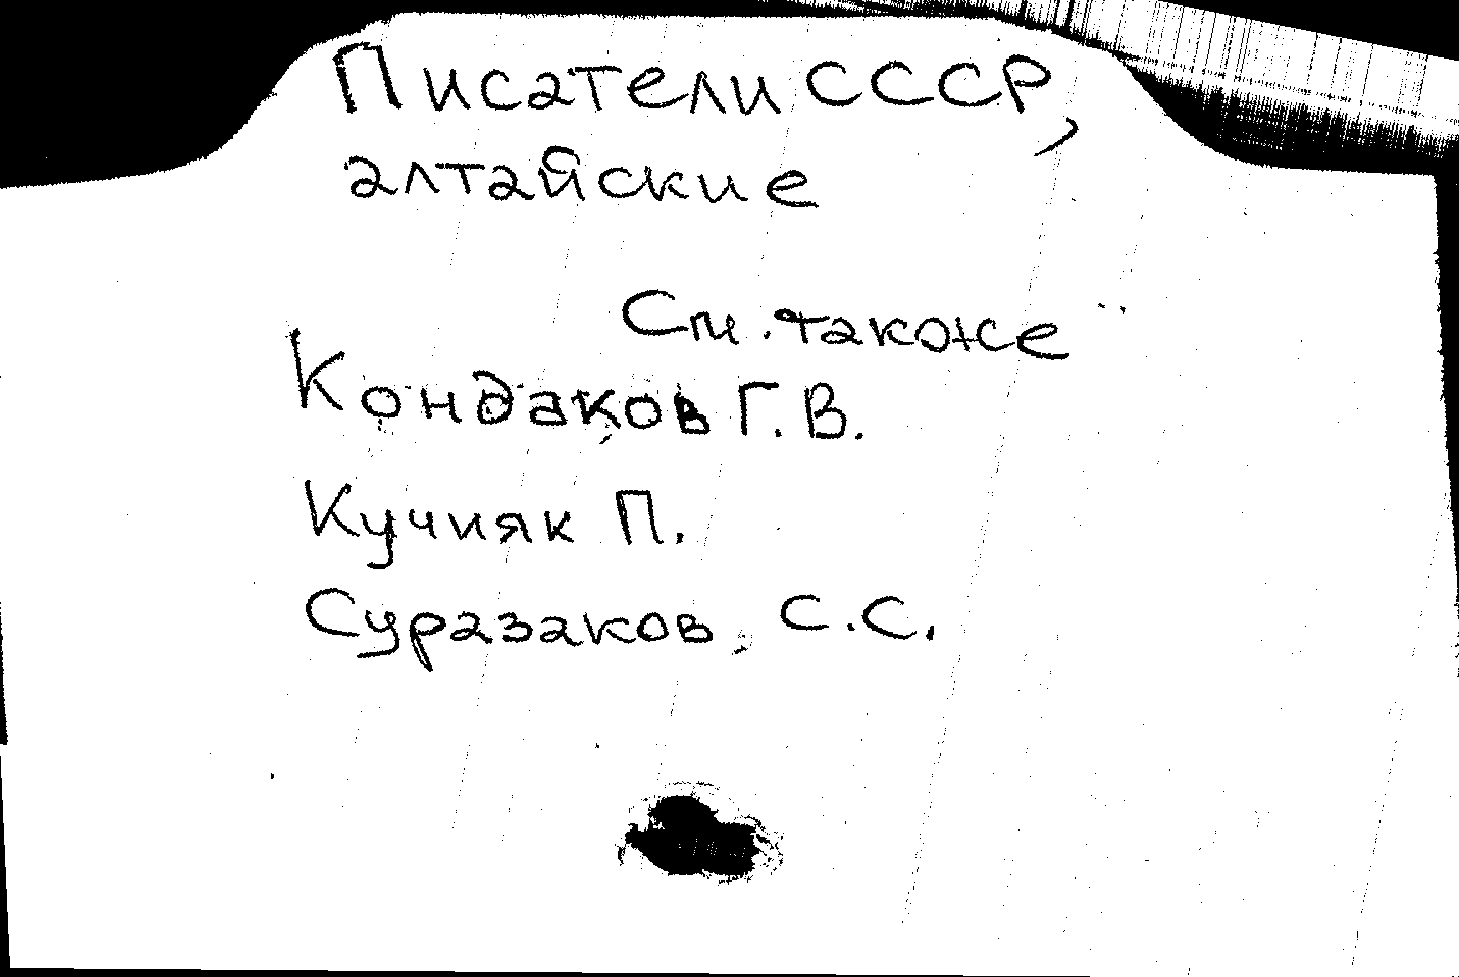 Писатели СССР,
алтайские
См. также
Кондаков Г.В.
Кучияк П.
Суразаков, С.С.